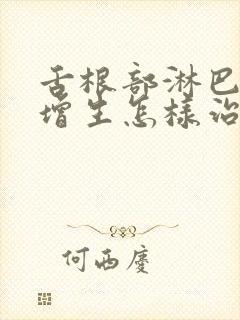 舌根部淋巴
增生怎样治
何西庆